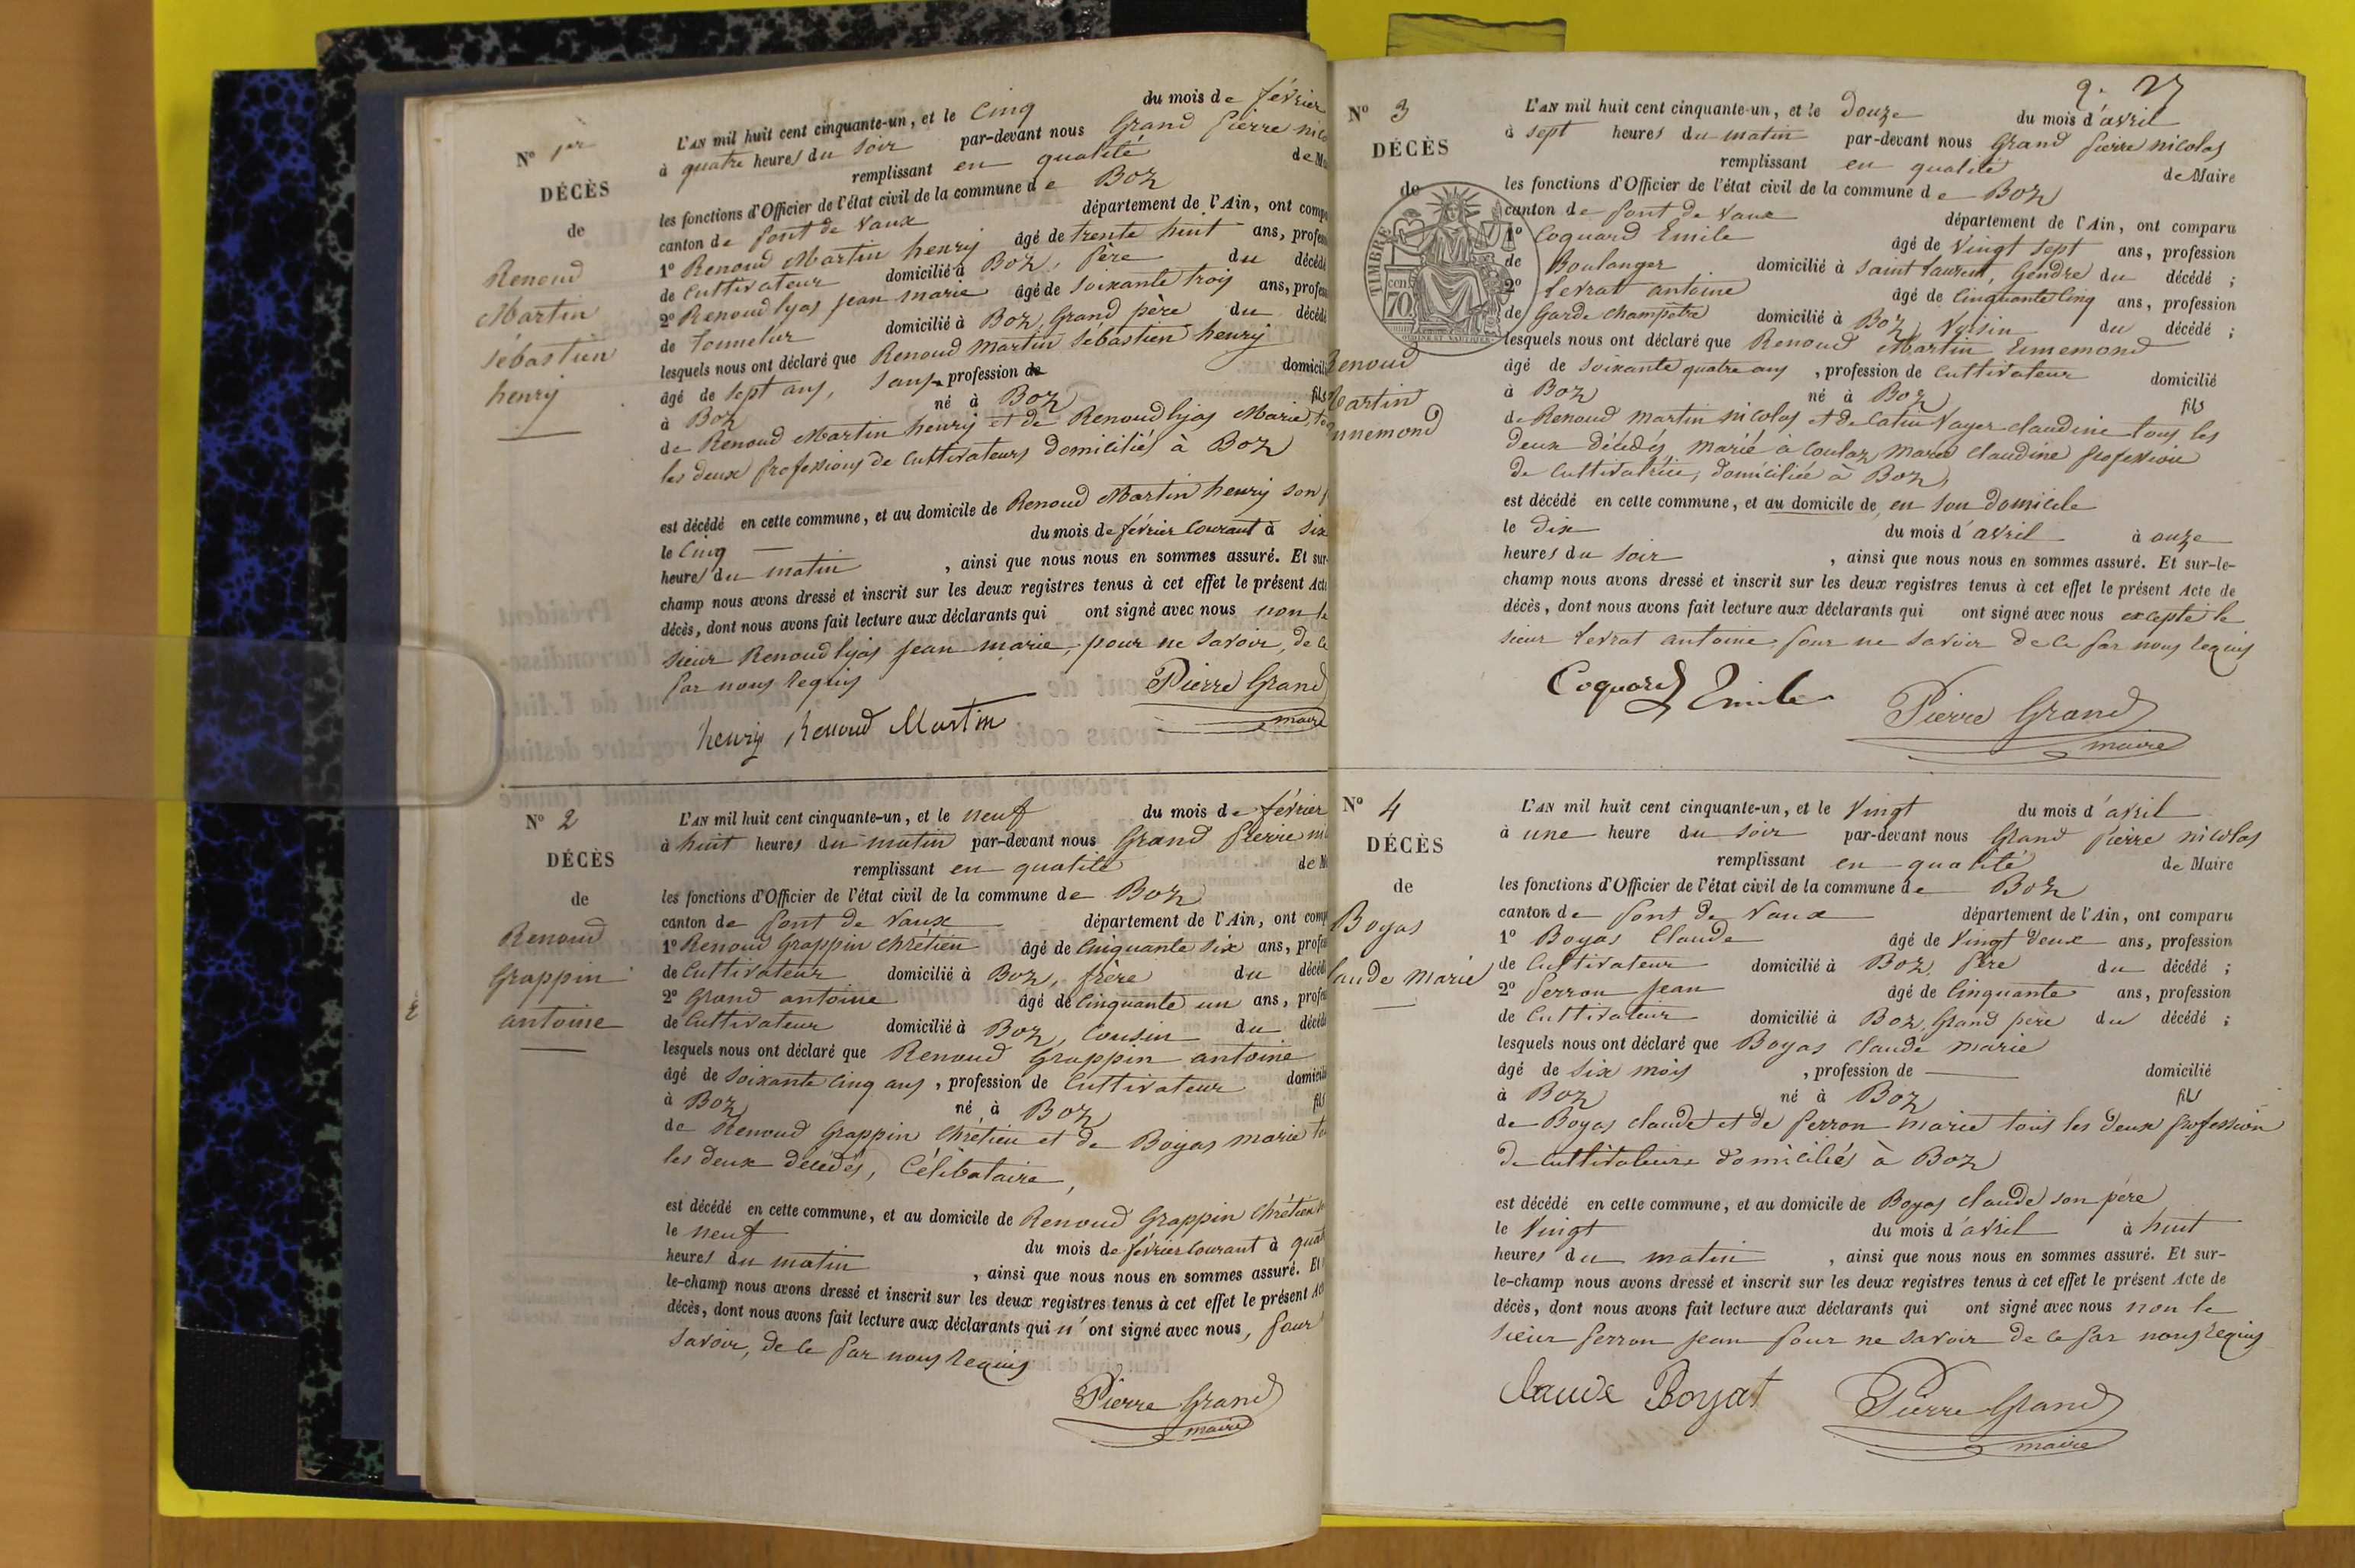 N° 1er
DÉCÈS
de
Renoud
Martin
Sébastien
henry
L'AN mil huit cent cinquante-un, et le Cinq du mois de février
à quatre heures du soir par-devant nous Grand Pierre nico
remplissant en qualité de Ma
les fonctions d'Officier de l'état civil de la commune de Boz
canton de Pont de Vaux département de l'Ain, ont comp
1° Renoud Martin henry âgé de trente huit ans, profess
de Cultivateur domicilié à Boz, Père du décédé
2° Renoud lyas jean marie âgé de soixante trois ans, profess
de Tonnelier domicilié à Boz, Grand père du décédé
lesquels nous ont déclaré que Renoud Martin Sébastien henry
âgé de sept ans, sans profession de domicili
à Boz né à Boz fils
de Renoud Martin henry et de Renoud lyas Marie, to
les deux professions de Cultivateurs domiciliés à Boz
est décédé en cette commune, et au domicile de Renoud Martin henry son p
le Cinq du mois de février Courant à six
heures du matin, ainsi que nous nous en sommes assuré. Et sur-
champ nous avons dressé et inscrit sur les deux registres tenus à cet effet le présent Acte
décès, dont nous avons fait lecture aux déclarants qui ont signé avec nous non le
sieur Renoud lyas jean marie, pour ne savoir, de ce
par nous requis
Pierre Grand
maire
henry renoud Martin
N° 2
DÉCÈS
de
Renoud
Grappin
antoine
L'AN mil huit cent cinquante-un, et le neuf du mois de février
à huit heures du matin par-devant nous Grand Pierre ni
remplissant en qualité de M
les fonctions d'Officier de l'état civil de la commune de Boz
canton de Pont de Vaux département de l'Ain, ont comp
1° Renoud Grappin Chrétien âgé de Cinquante six ans, profes
de Cultivateur domicilié à Boz, frère du décéd
2° Grand antoine âgé de Cinquante un ans, profes
de Cultivateur domicilié à Boz, Cousin du décéd
lesquels nous ont déclaré que Renoud Grappin antoine
âgé de Soixante Cinq ans, profession de Cultivateur domicili
à Boz né à Boz fils
de Renoud Grappin Chrétien et de Boyas marie to
les deux décédés, Célibataire,
est décédé en cette commune, et au domicile de Renoud Grappin Chrétien
le neuf du mois de février Courant à quat
heures du matin, ainsi que nous nous en sommes assuré. Et
le-champ nous avons dressé et inscrit sur les deux registres tenus à cet effet le présent Ac
décès, dont nous avons fait lecture aux déclarants qui n'ont signé avec nous, pour
savoir, de ce par nous requis
Pierre Grand
maire
N° 3
DÉCÈS
de
TIMBRE
70 cen.
Renoud
Martin
Ennemond
L'AN mil huit cent cinquante-un, et le douze du mois d'avril
à sept heures du matin par-devant nous Grand Pierre nicolas
remplissant en qualité de Maire
les fonctions d'Officier de l'état civil de la commune de Boz
canton de Pont de Vaux département de l'Ain, ont comparu
1° Coquard Emile âgé de Vingt sept ans, profession
de Boulanger domicilié à Saint Laurent, Gendre du décédé ;
2° Levrat antoine âgé de Cinquante Cinq ans, profession
de Garde champêtre domicilié à Boz, Voisin du décédé ;
lesquels nous ont déclaré que Renoud Martin Ennemond
âgé de Soixante quatre ans, profession de Cultivateur domicilié
à Boz né à Boz fils
de Renoud Martin nicolas et de Catin Vayer claudine tous les
deux décédés, Marié à Coulaz Marie Claudine profession
de Cultivatrice, domiciliée à Boz,
est décédé en cette commune, et au domicile de en son domicile
le dix du mois d'avril à onze
heures du soir, ainsi que nous nous en sommes assuré. Et sur-le-
champ nous avons dressé et inscrit sur les deux registres tenus à cet effet le présent Acte de
décès, dont nous avons fait lecture aux déclarants qui ont signé avec nous excepté le
sieur Levrat antoine pour ne savoir de ce par nous requis
Coquard Emile
Pierre Grand
maire
N° 4
DÉCÈS
de
Boyas
laude Marie
L'AN mil huit cent cinquante-un, et le Vingt du mois d'avril
à une heure du soir par-devant nous Grand Pierre nicolas
remplissant en qualité de Maire
les fonctions d'Officier de l'état civil de la commune de Boz
canton de Pont de Vaux département de l'Ain, ont comparu
1° Boyas Claude âgé de Vingt deux ans, profession
de Cultivateur domicilié à Boz, Père du décédé ;
2° Perron Jean âgé de Cinquante ans, profession
de Cultivateur domicilié à Boz, Grand père du décédé ;
lesquels nous ont déclaré que Boyas Claude Marie
âgé de Six mois, profession de domicilié
à Boz né à Boz fils
de Boyas Claude et de Perron Marie tous les deux profession
de Cultivateurs domiciliés à Boz
est décédé en cette commune, et au domicile de Boyas Claude son père
le Vingt du mois d'avril à huit
heures du matin, ainsi que nous nous en sommes assuré. Et sur-
le-champ nous avons dressé et inscrit sur les deux registres tenus à cet effet le présent Acte de
décès, dont nous avons fait lecture aux déclarants qui ont signé avec nous non le
sieur Perron Jean pour ne savoir de ce par nous requis
Claude Boyat
Pierre Grand
maire